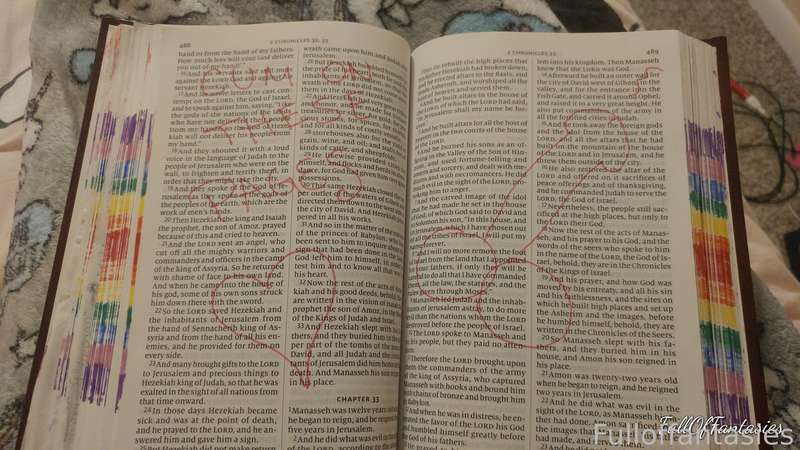 488
2 CHRONICLES 32, 33
hand or from the hand of my fathers.
How much less will your God deliver
you out of my hand!"
16 And his servants said still more
against the LORD God and against his
servant Hezekiah.
tempt on the LORD, the God of Israel,
and to speak against him, saying, "Like
the gods of the nations of the lands
who have not delivered their people
from my hands, so the God of Hezekiah
will not deliver his people from
my hand."
18 And they shouted it with a loud
voice in the language of Judah to the
people of Jerusalem who were on the
wall, to frighten and terrify them, in
order that they might take the city.
19 And they spoke of the God of
Jerusalem as they spoke of the gods of
the peoples of the earth, which are the
work of men's hands.
20 Then Hezekiah the king and Isaiah
the prophet, the son of Amoz, prayed
because of this and cried to heaven.
21 And the LORD sent an angel, who
cut off all the mighty warriors and
commanders and officers in the camp
of the king of Assyria. So he returned
with shame of face to his own land.
And when he came into the house of
his god, some of his own sons struck
him down there with the sword.
22 So the LORD saved Hezekiah and
the inhabitants of Jerusalem from
the hand of Sennacherib king of As-
syria and from the hand of all his en-
emies, and he provided for them on
every side.
23 And many brought gifts to the LORD
to Jerusalem and precious things to
Hezekiah king of Judah, so that he was
exalted in the sight of all nations from
that time onward.
24 In those days Hezekiah became
sick and was at the point of death,
and he prayed to the LORD, and he an-
swered him and gave him a sign.
25 But Hezekiah did not make return
wrath came upon him and Judah and
Jerusalem.
26 But Hezekiah humbled himself for
the pride of his heart, both he and the
inhabitants of Jerusalem, so that the
wrath of the LORD did not come upon
them in the days of Hezekiah.
27 And Hezekiah had very great riches
and honor, and he made for himself
treasuries for silver, for gold, for pre-
cious stones, for spices, for shields,
28 storehouses also for the yield of
grain, wine, and oil; and stalls for all
kinds of cattle, and sheepfolds.
29 He likewise provided cities for
himself, and flocks and herds in abun-
dance, for God had given him very great
possessions.
30 This same Hezekiah closed the up-
per outlet of the waters of Gihon and
directed them down to the west side of
the city of David. And Hezekiah pros-
pered in all his works.
31 And so in the matter of the envoys
of the princes of Babylon, who had
been sent to him to inquire about the
sign that had been done in the land,
God left him to himself, in order to
test him and to know all that was in
his heart.
32 Now the rest of the acts of Heze-
kiah and his good deeds, behold, they
are written in the vision of Isaiah the
prophet the son of Amoz, in the Book
of the Kings of Judah and Israel.
33 And Hezekiah slept with his fa-
thers, and they buried him in the up-
per part of the tombs of the sons of
David, and all Judah and the inhabi-
tants of Jerusalem did him honor at his
death. And Manasseh his son reigned
in his place.
CHAPTER 33
1 Manasseh was twelve years old when
he began to reign, and he reigned fifty-
five years in Jerusalem.
2 And he did what was evil in the sight
2 CHRONICLES 33
489
3 For he rebuilt the high places that
his father Hezekiah had broken down,
and he erected altars to the Baals, and
made Asheroth, and worshiped all the
host of heaven and served them.
4 And he built altars in the house of
the LORD, of which the LORD had said,
"In Jerusalem shall my name be for-
ever."
5 And he built altars for all the host of
heaven in the two courts of the house
of the LORD.
6 And he burned his sons as an of-
fering in the Valley of the Son of Hin-
nom, and used fortune-telling and
omens and sorcery, and dealt with me-
diums and with necromancers. He did
much evil in the sight of the LORD, pro-
voking him to anger.
7 And the carved image of the idol
that he had made he set in the house
of God, of which God said to David and
to Solomon his son, "In this house, and
in Jerusalem, which I have chosen out
of all the tribes of Israel, I will put my
name forever,
8 and I will no more remove the foot
of Israel from the land that I appointed
for your fathers, if only they will be
careful to do all that I have commanded
them, all the law, the statutes, and the
rules given through Moses."
9 Manasseh led Judah and the inhab-
itants of Jerusalem astray, to do more
evil than the nations whom the LORD
destroyed before the people of Israel.
10 The LORD spoke to Manasseh and
to his people, but they paid no atten-
tion.
11 Therefore the LORD brought upon
them the commanders of the army
of the king of Assyria, who captured
Manasseh with hooks and bound him
with chains of bronze and brought him
to Babylon.
12 And when he was in distress, he en-
treated the favor of the LORD his God
and humbled himself greatly before
the God of his fathers.
lem into his kingdom. Then Manasseh
knew that the LORD was God.
14 Afterward he built an outer wall for
the city of David west of Gihon, in the
valley, and for the entrance into the
Fish Gate, and carried it around Ophel,
and raised it to a very great height. He
also put commanders of the army in
all the fortified cities in Judah.
15 And he took away the foreign gods
and the idol from the house of the
LORD, and all the altars that he had
built on the mountain of the house
of the LORD and in Jerusalem, and he
threw them outside of the city.
16 He also restored the altar of the
LORD and offered on it sacrifices of
peace offerings and of thanksgiving,
and he commanded Judah to serve the
LORD, the God of Israel.
17 Nevertheless, the people still sac-
rificed at the high places, but only to
the LORD their God.
18 Now the rest of the acts of Manas-
seh, and his prayer to his God, and the
words of the seers who spoke to him
in the name of the LORD, the God of Is-
rael, behold, they are in the Chronicles
of the Kings of Israel.
19 And his prayer, and how God was
moved by his entreaty, and all his sin
and his faithlessness, and the sites on
which he built high places and set up
the Asherim and the images, before
he humbled himself, behold, they are
written in the Chronicles of the Seers.
20 So Manasseh slept with his fa-
thers, and they buried him in his
house, and Amon his son reigned in
his place.
21 Amon was twenty-two years old
when he began to reign, and he reigned
two years in Jerusalem.
22 And he did what was evil in the
sight of the LORD, as Manasseh his fa-
ther had done.
FullOfFantasies
Fulloffantasies